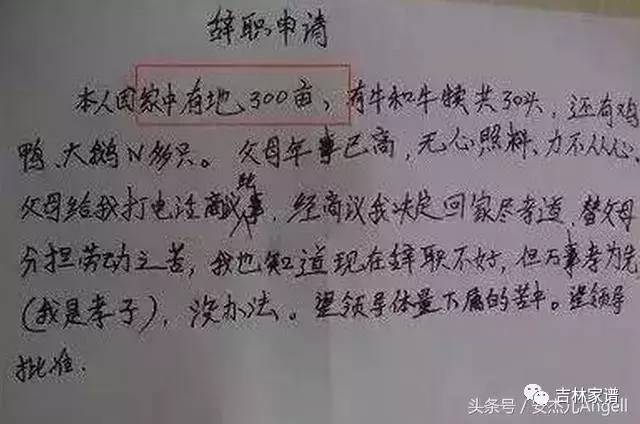 辞职申请
本人因家中有地300亩,有牛和牛犊共30头,还有鸡
鸭、大鹅N多只。父母年事已高,无心照料、力不从心,
父母给我打电话商议此事,经商议我决定回家尽孝道,替父母
分担劳动之苦,我也知道现在辞职不好,但万事孝为先
(我是孝子),没办法。望领导体量下属的苦中。望领导
批准.
吉林家谱
头条号/安杰儿Angell